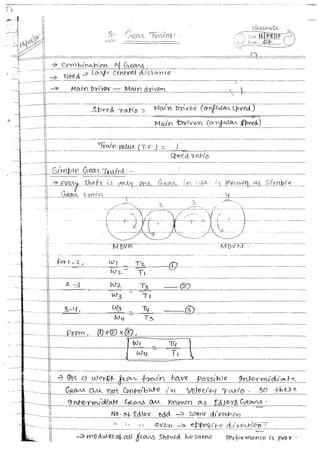 5. Gear Trains:-
classmate
Date
Page
→ Combination of Gears.
→ Need → Large central distance
→ Main Driver — Main driven
Speed ratio = Main Driver (angular speed)
Main Driven (angular speed)
Train value (T.V.) = 1
Speed ratio
Simple Gear Trains:-
→ every shaft is only one Gear in use is known as Simple
Gear train.
1 2 3 4
MDVR MDVN
for 1-2, W1 = T2 —①
W2 T1
2-3 W2 = T3 —②
W3 T1
3-4, W3 = T4 —③
W4 T3
From, ①×②×③,
W1 = T4
W4 T1
→ gear train have possible Intermidiate
Gears are not Contribute in Velocity ratio. So these
Intermidiate Gears are known as Idlers Gears.
No. of Idler odd → same diration
" " " even → opposite direction
→ modules of all gears should be same. Performance is poor.